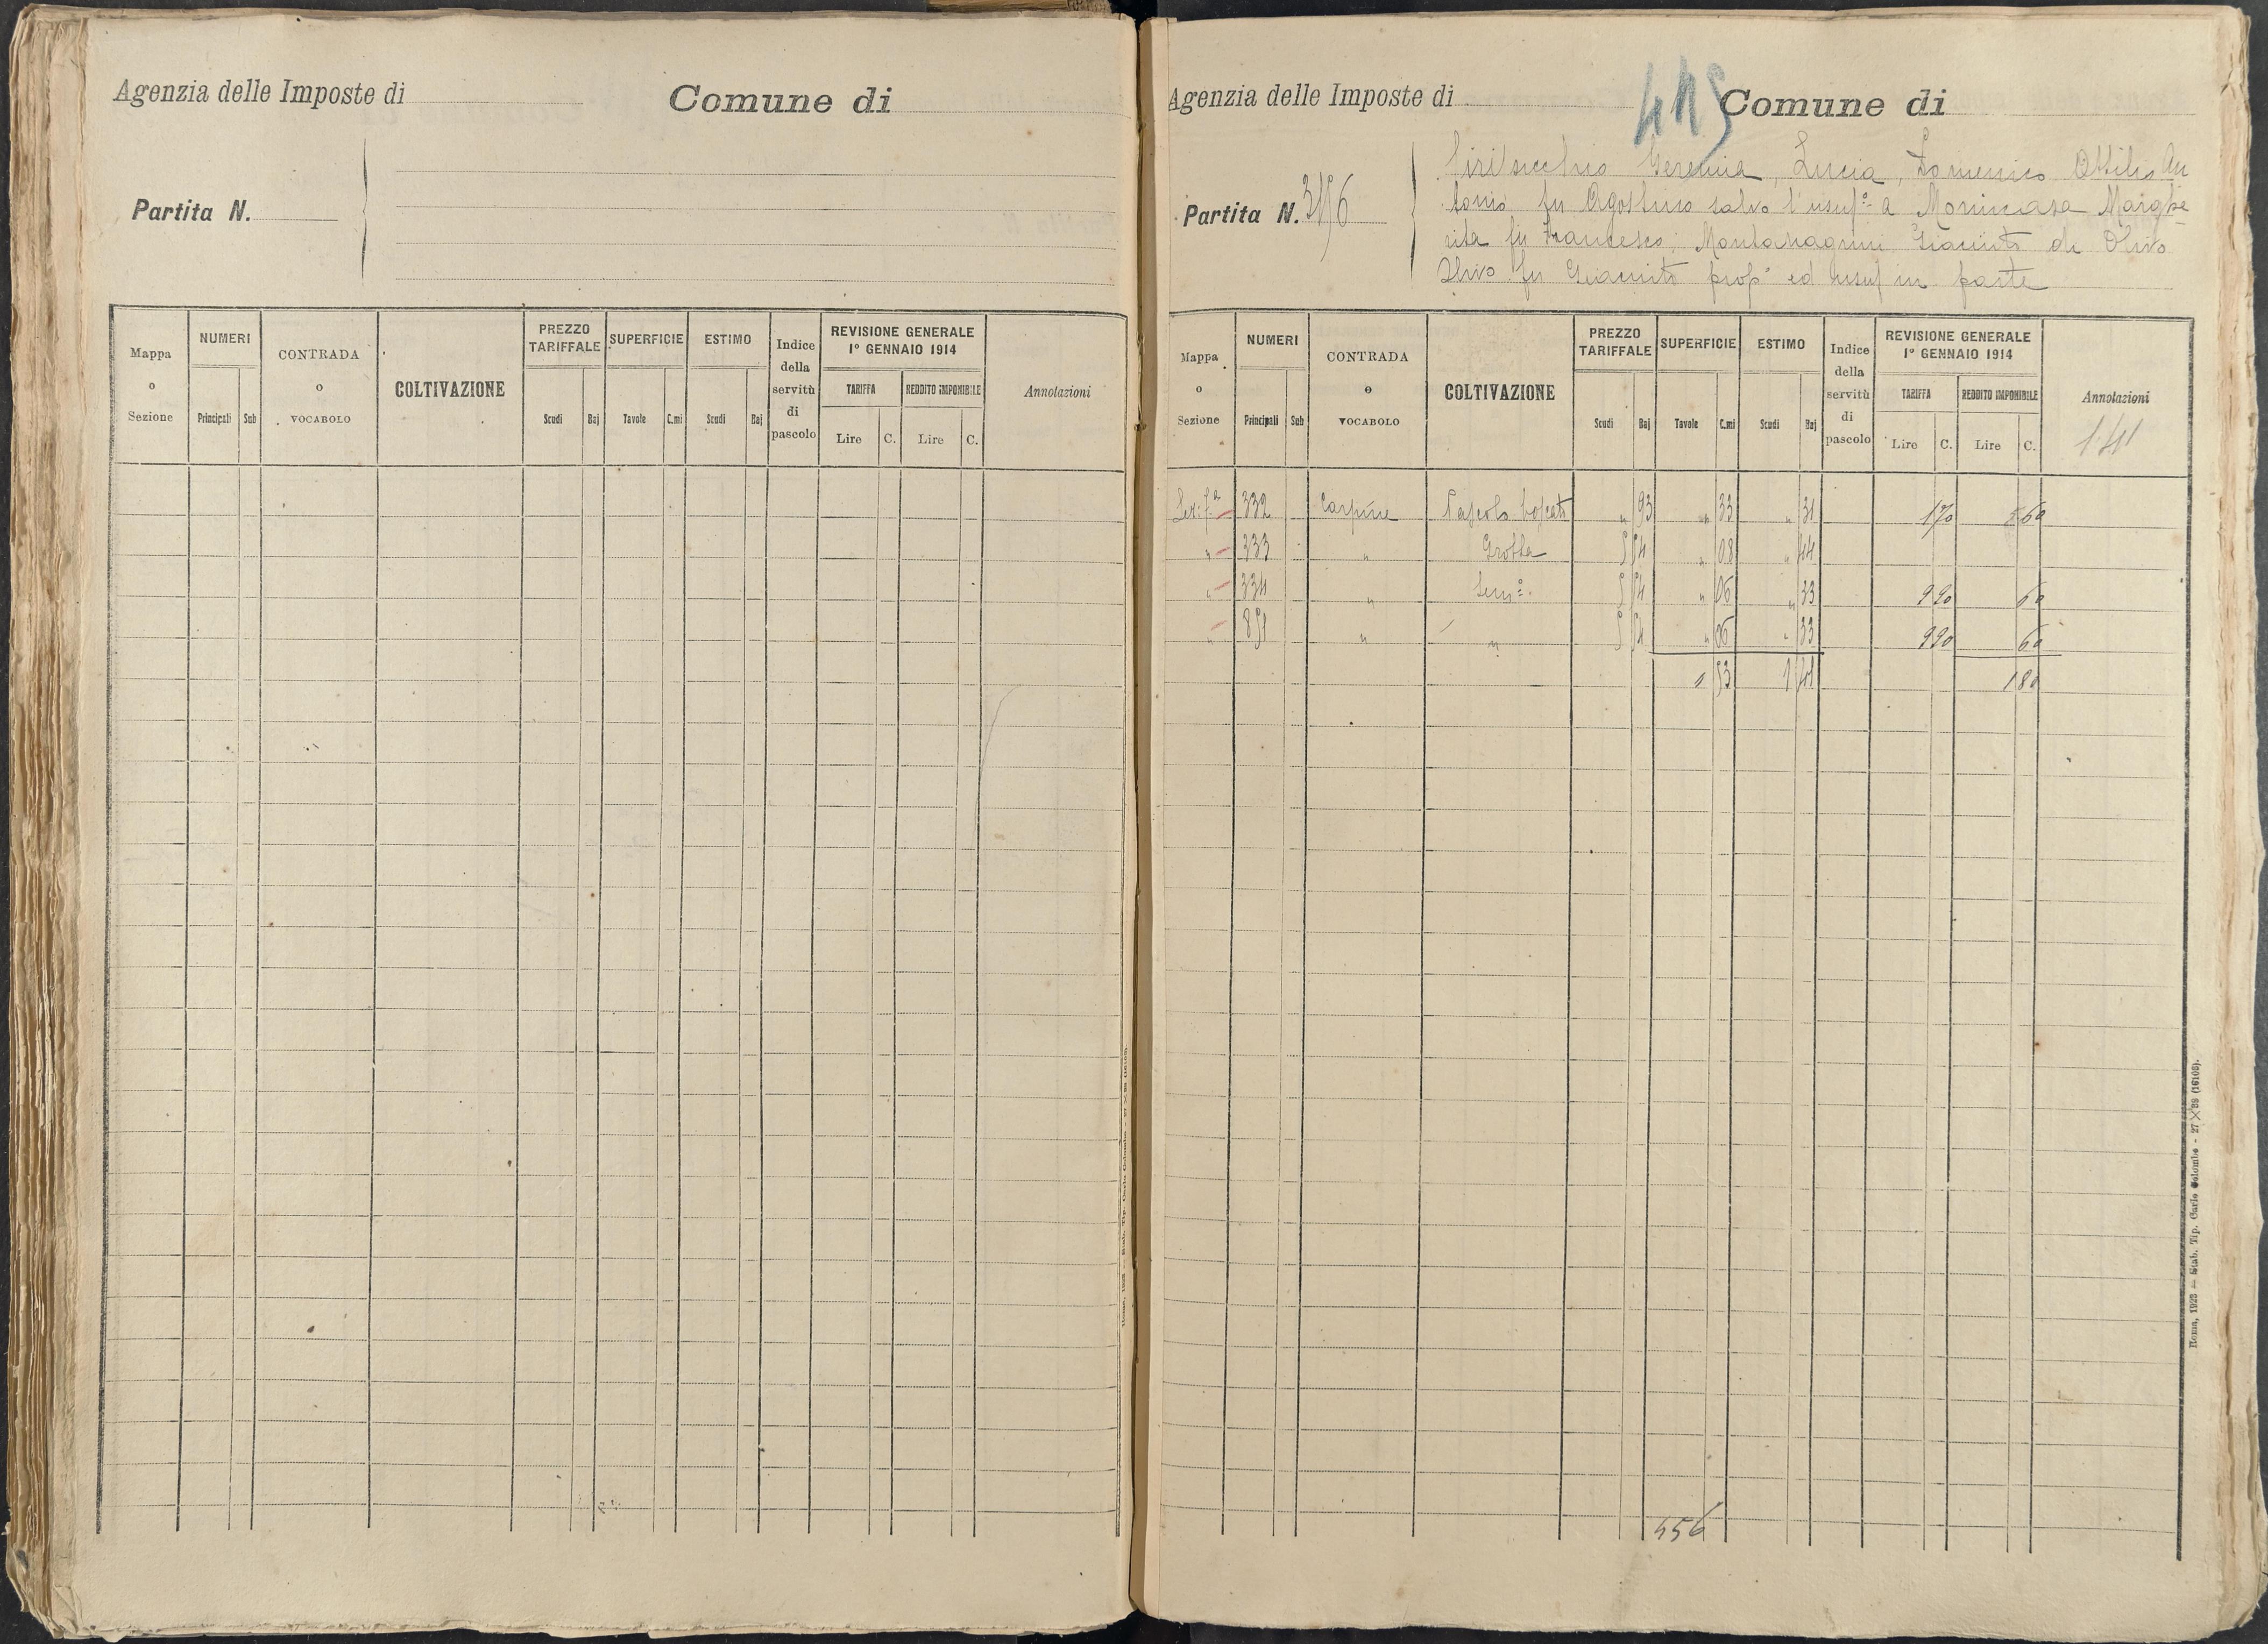 Agenzia delle Imposte di
Comune di
Partita N.
Mappa o Sezione
NUMERI
Principali Sub
CONTRADA o VOCABOLO
COLTIVAZIONE
PREZZO TARIFFALE
Scudi Baj
SUPERFICIE
Tavole C.mi
ESTIMO
Scudi Baj
Indice della servitù di pascolo
REVISIONE GENERALE
1° GENNAIO 1914
TARIFFA
Lire C.
REDDITO IMPONIBILE
Lire C.
Annotazioni
Agenzia delle Imposte di
Comune di
Partita N.
Geremia, Lucia, Domenico Attilio An
tonio fu Agostino salvo l'usuf° a Marghe
rita fu Francesco, Giacinto di Olivo
Olivo fu Giacinto prop° ed usuf in parte
Mappa o Sezione
NUMERI
Principali Sub
CONTRADA o VOCABOLO
COLTIVAZIONE
PREZZO TARIFFALE
Scudi Baj
SUPERFICIE
Tavole C.mi
ESTIMO
Scudi Baj
Indice della servitù di pascolo
REVISIONE GENERALE
1° GENNAIO 1914
TARIFFA
Lire C.
REDDITO IMPONIBILE
Lire C.
Annotazioni
1.41
Sez: 332 Carpine Pascolo boscato " 93 " 33 " 31 1 70 60
" 333 " Grotta 5 54 " 08 " 44
" 334 " Sem° 5 54 " 06 " 33 9 90 60
" 851 " " 5 54 " 06 " 33 9 90 60
" 53 1 41 1 80
456
Roma, 1923 — Stab. Tip. Carlo Colombo - 27×38 (16108).